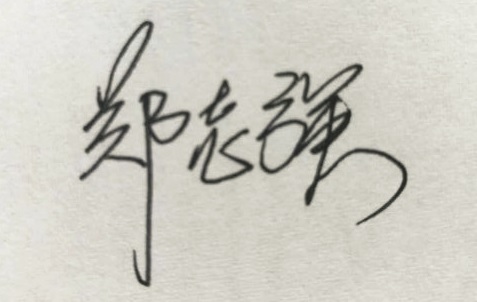 郑志强